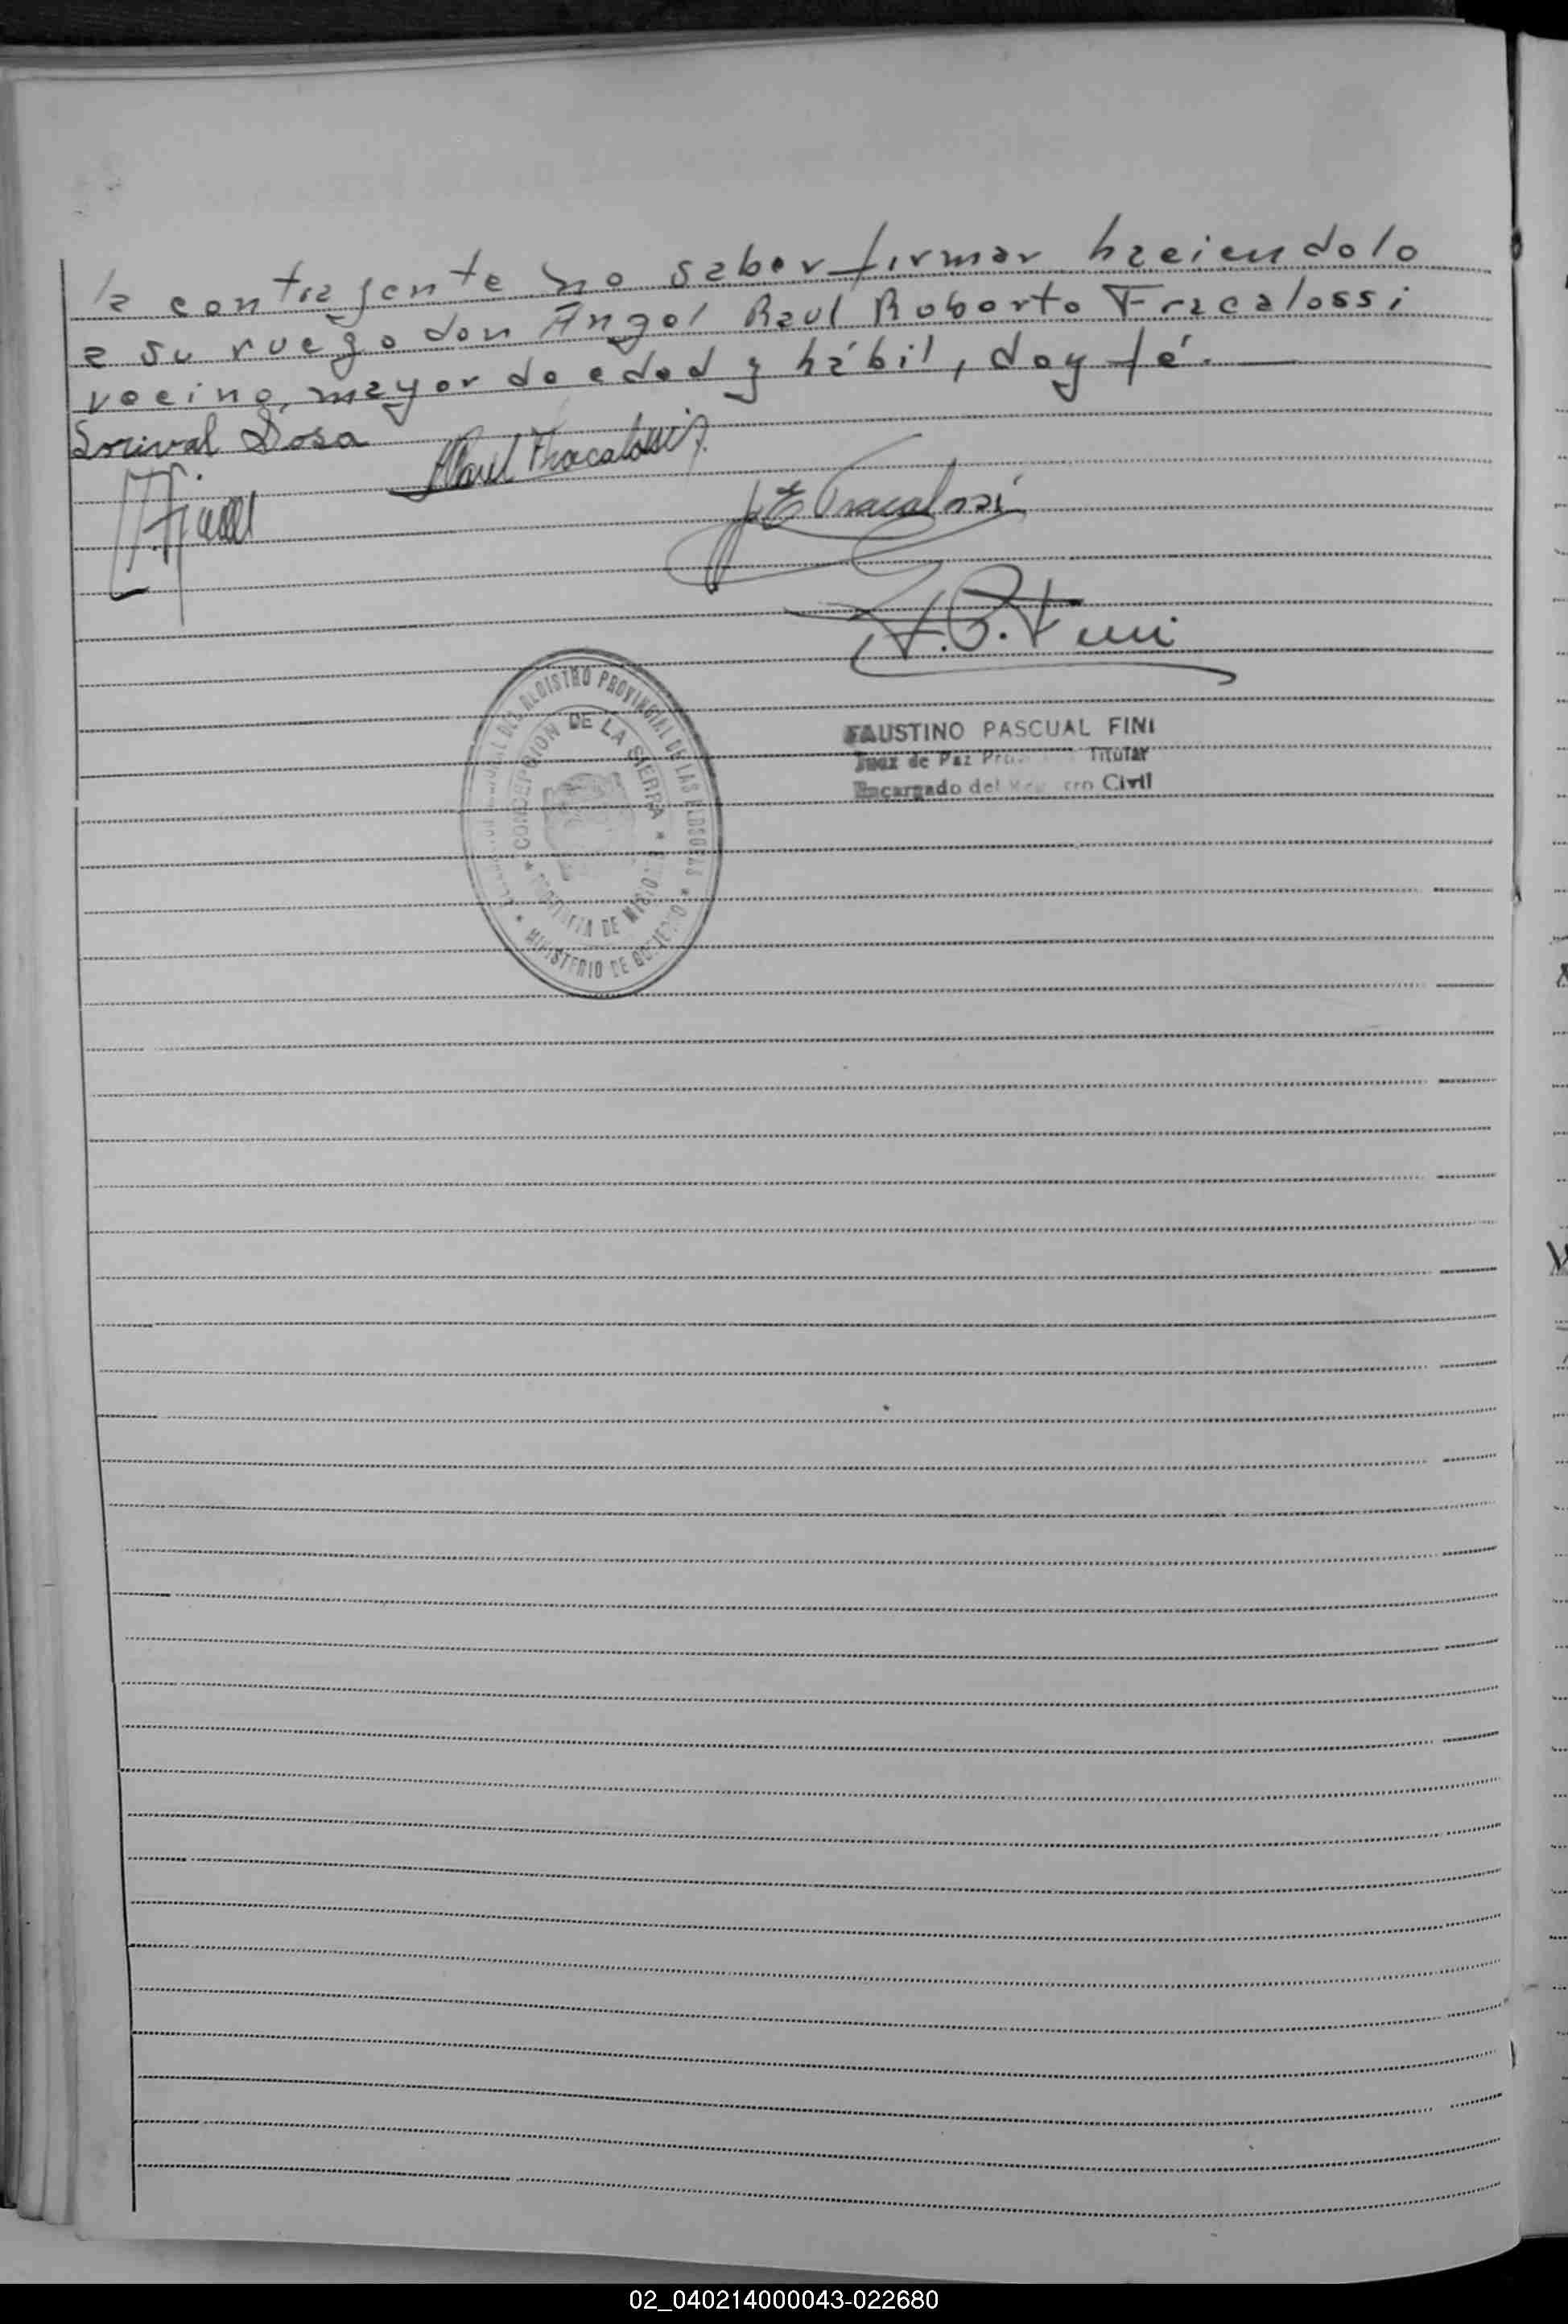 la contrayente no saber firmar haciendolo
a su ruego don Ángel Raul Roberto Fracalossi
vecino, mayor de edad y hábil, doy fé.
Dorival Dosa
Raul Fracalossi
J E Fracalossi
F. P. Fini
REGISTRO PROVINCIAL DE LAS PERSONAS
* CONCEPCION DE LA SIERRA *
PROVINCIA DE MISIONES
* MINISTERIO DE GOBIERNO *
FAUSTINO PASCUAL FINI
Juez de Paz Titular
Encargado del Registro Civil
02_040214000043-022680